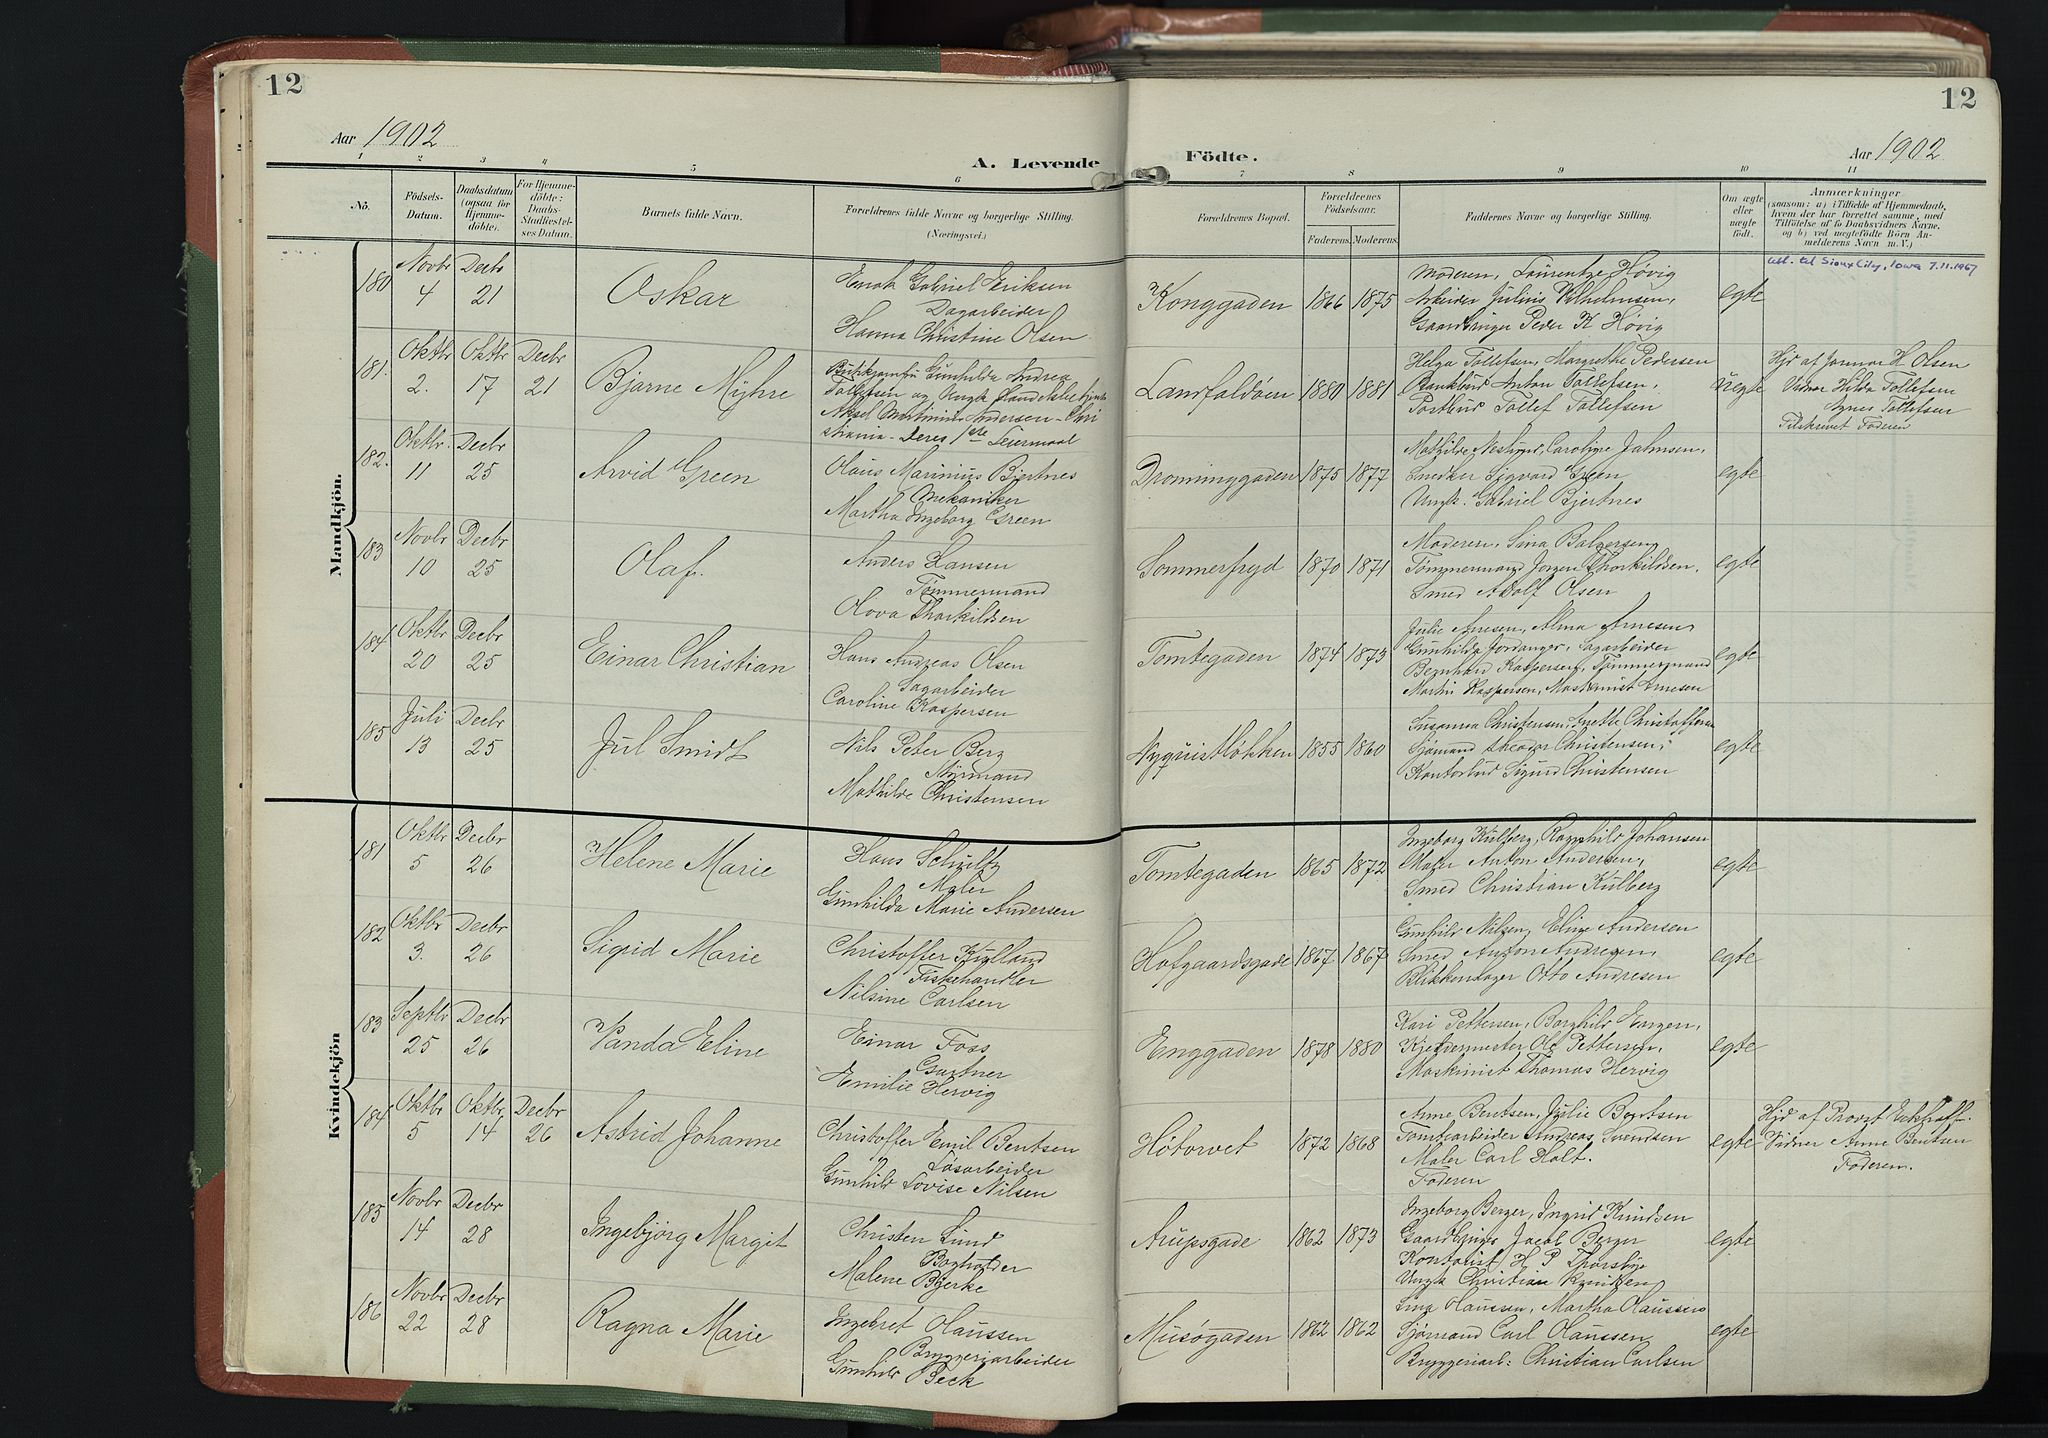 12
12
Aar 1902
Aar 1902
A. Levende Födte.
1 2 3 4 5 6 7 8 9 10 11
No.
Födsels-
Datum.
Daabsdatum
(ogsaa for
Hjemme-
döbte).
For Hjemme-
döbte:
Daabs-
Stadfæstel-
ses Datum.
Barnets fulde Navn.
Forældrenes fulde Navne og borgerlige Stilling.
(Næringsvei.)
Forældrenes Bopæl.
Forældrenes
Födselsaar.
Faderens. Moderens.
Faddernes Navne og borgerlige Stilling.
Om ægte
eller
uægte
födt.
Anmærkninger
(saasom: a) i Tilfælde af Hjemmedaab,
hvem der har forrettet samme, med
Tilföielse af to Daabsvidners Navne.
og b) ved uægtefödte Börn An-
melderens Navn m. V.)
Mandkjön.
180 Novbr 4 Decbr 21
Oskar
Enok Gabriel Eriksen
Dagarbeider
Hanna Christine Olsen
Konggaden 1866 1875
Moderen, Laurentze Høvig
Arbeider Julius Vilhelmsen,
Gaardbruger Peder K Høvig
egte
utl. til Sioux City, Iowa 7.11.1967
181. Oktbr 2. Oktbr 17 Decbr 21
Bjarne Myhre
Gunhilda Andrea
Tollefsen og Ungk
Aksel Martinius Andersen - Chri
stiania - Deres 1ste Leiermaal
Landfaldøen 1880 1881
Helga Tollefsen, Margrethe Pedersen
Bankbud Anton Tollefsen,
Postbud Tollef Tollefsen
uegte
Hjd af Jordmor H Olsen
Vidner Hilda Tollefsen
Agnes Tollefsen
Tilskrevet Faderen
182. Oktbr. 11 Decbr 25
Arvid Green
Olaus Marinius Bjertnes
Mekaniker
Martha Ingeborg Green
Dronninggaden 1875 1877
Mathilde Caroline Jahnsen,
Snedker Sigvard Green
Ungk. Gabriel Bjertnes
egte
183 Novbr 10 Decbr 25
Olaf.
Anders Hansen
Tømmermand
Olova Thorkildsen
Sommerfryd 1870 1871
Moderen, Lina Bolgersen,
Tømmermand Jørgen Thorkildsen,
Smed Adolf Olsen
egte
184 Oktbr 20 Decbr 25
Einar Christian
Hans Andreas Olsen
Sagarbeider
Caroline Kaspersen
Tomtegaden 1874 1873
Julie Arnesen, Alma Arnesen,
Gunhilda Jordanger, Sagarbeider
Bernhard Kaspersen, Tømmermand
Martin Kaspersen, Maskinist Arnesen
egte
185 Juli 13 Decbr 25
Jul Smidt
Nils Peter Berg
Sjømand
Mathilde Christensen
Nyquistløkken 1855 1860
Susanna Christensen, Anette Christoffersen
Sjømand Theodor Christensen,
Kontorbud Sigurd Christensen
egte
Kvindekjön
181 Oktbr 5 Decbr 26
Helene Marie
Hans Schultz
Maler
Gunhilda Marie Andersen
Tomtegaden 1865 1872
Ingeborg Kulberg, Ragnhild Johansen
Maler Anton Andersen,
Smed Christian Kulberg
egte
182 Oktbr 3. Decbr 26
Sigrid Marie
Christoffer Kylland
Fiskehandler
Nilsine Carlsen
Hofgaardsgade 1867 1867
Gunhild Nilsen, Eline Andersen
Smed Anton Andresen,
Blikkenslager Otto Andresen
egte
183 Septbr 25 Decbr 26
Vanda Eline
Einar Foss
Gartner
Emilie Hervig
Enggaden 1878 1880
Kari Pettersen, Borghild
Kjedlermester Ole Pettersen,
Maskinist Thomas Hervig
egte
184 Oktbr 5 Oktbr 14 Decbr 26
Astrid Johanne
Christoffer Emil Bentsen
Løsarbeider
Gunhild Lovise Nilsen
Høtorvet 1872 1868
Anne Bentsen, Julie Bentsen
Tomtearbeider Andreas Svendsen
Maler Carl Holt.
Faderen
egte
Hjd af Provst Eckhoff
Vidner Anne Bentsen
Faderen.
185 Novbr 14 Decbr 28
Ingebjørg Margit
Christen Lund
Bogholder
Malene Bjerke
Arupsgade 1862 1873
Ingeborg Berger, Ingrid Knudsen
Gaardbruger Jacob Berger
Kontorist H P Thorsbye
Ungk Christian Knudsen
egte
186 Novbr 22 Decbr 28
Ragna Marie
Ingebret Olaussen
Bryggeriarbeider
Gunhild Beck
Musøgaden 1862 1862
Lina Olaussen, Martha Olaussen
Sjømand Carl Olaussen,
Bryggeriarb: Christian Carlsen
egte